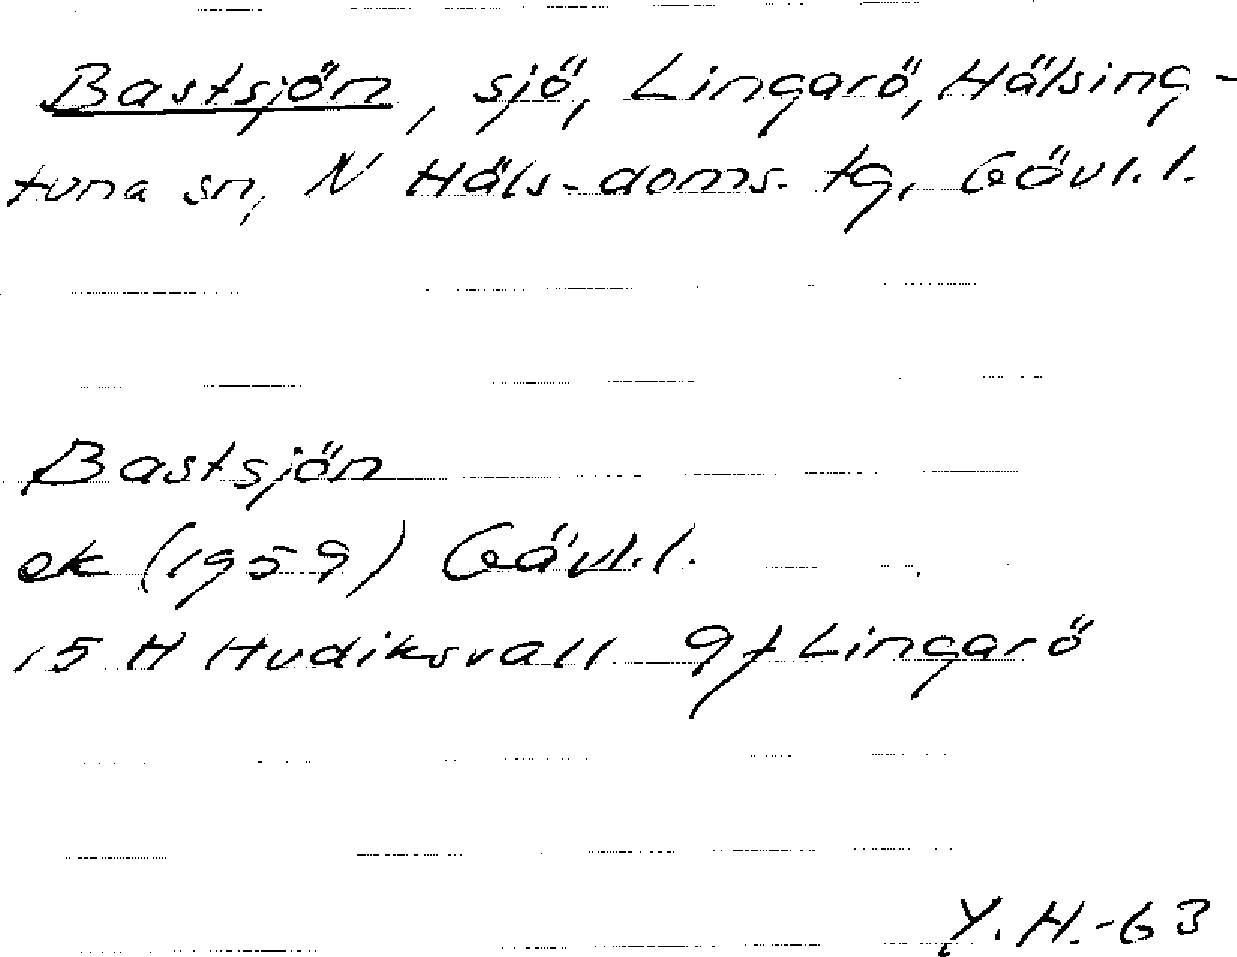 Bastsjön, sjö, Lingarö, Hälsing-
tuna sn, N Häls. doms. tg, Gävl. l.
Bastsjön
ek (1959) Gävl. l.
15 H Hudiksvall 9f Lingarö
Y. H. -63